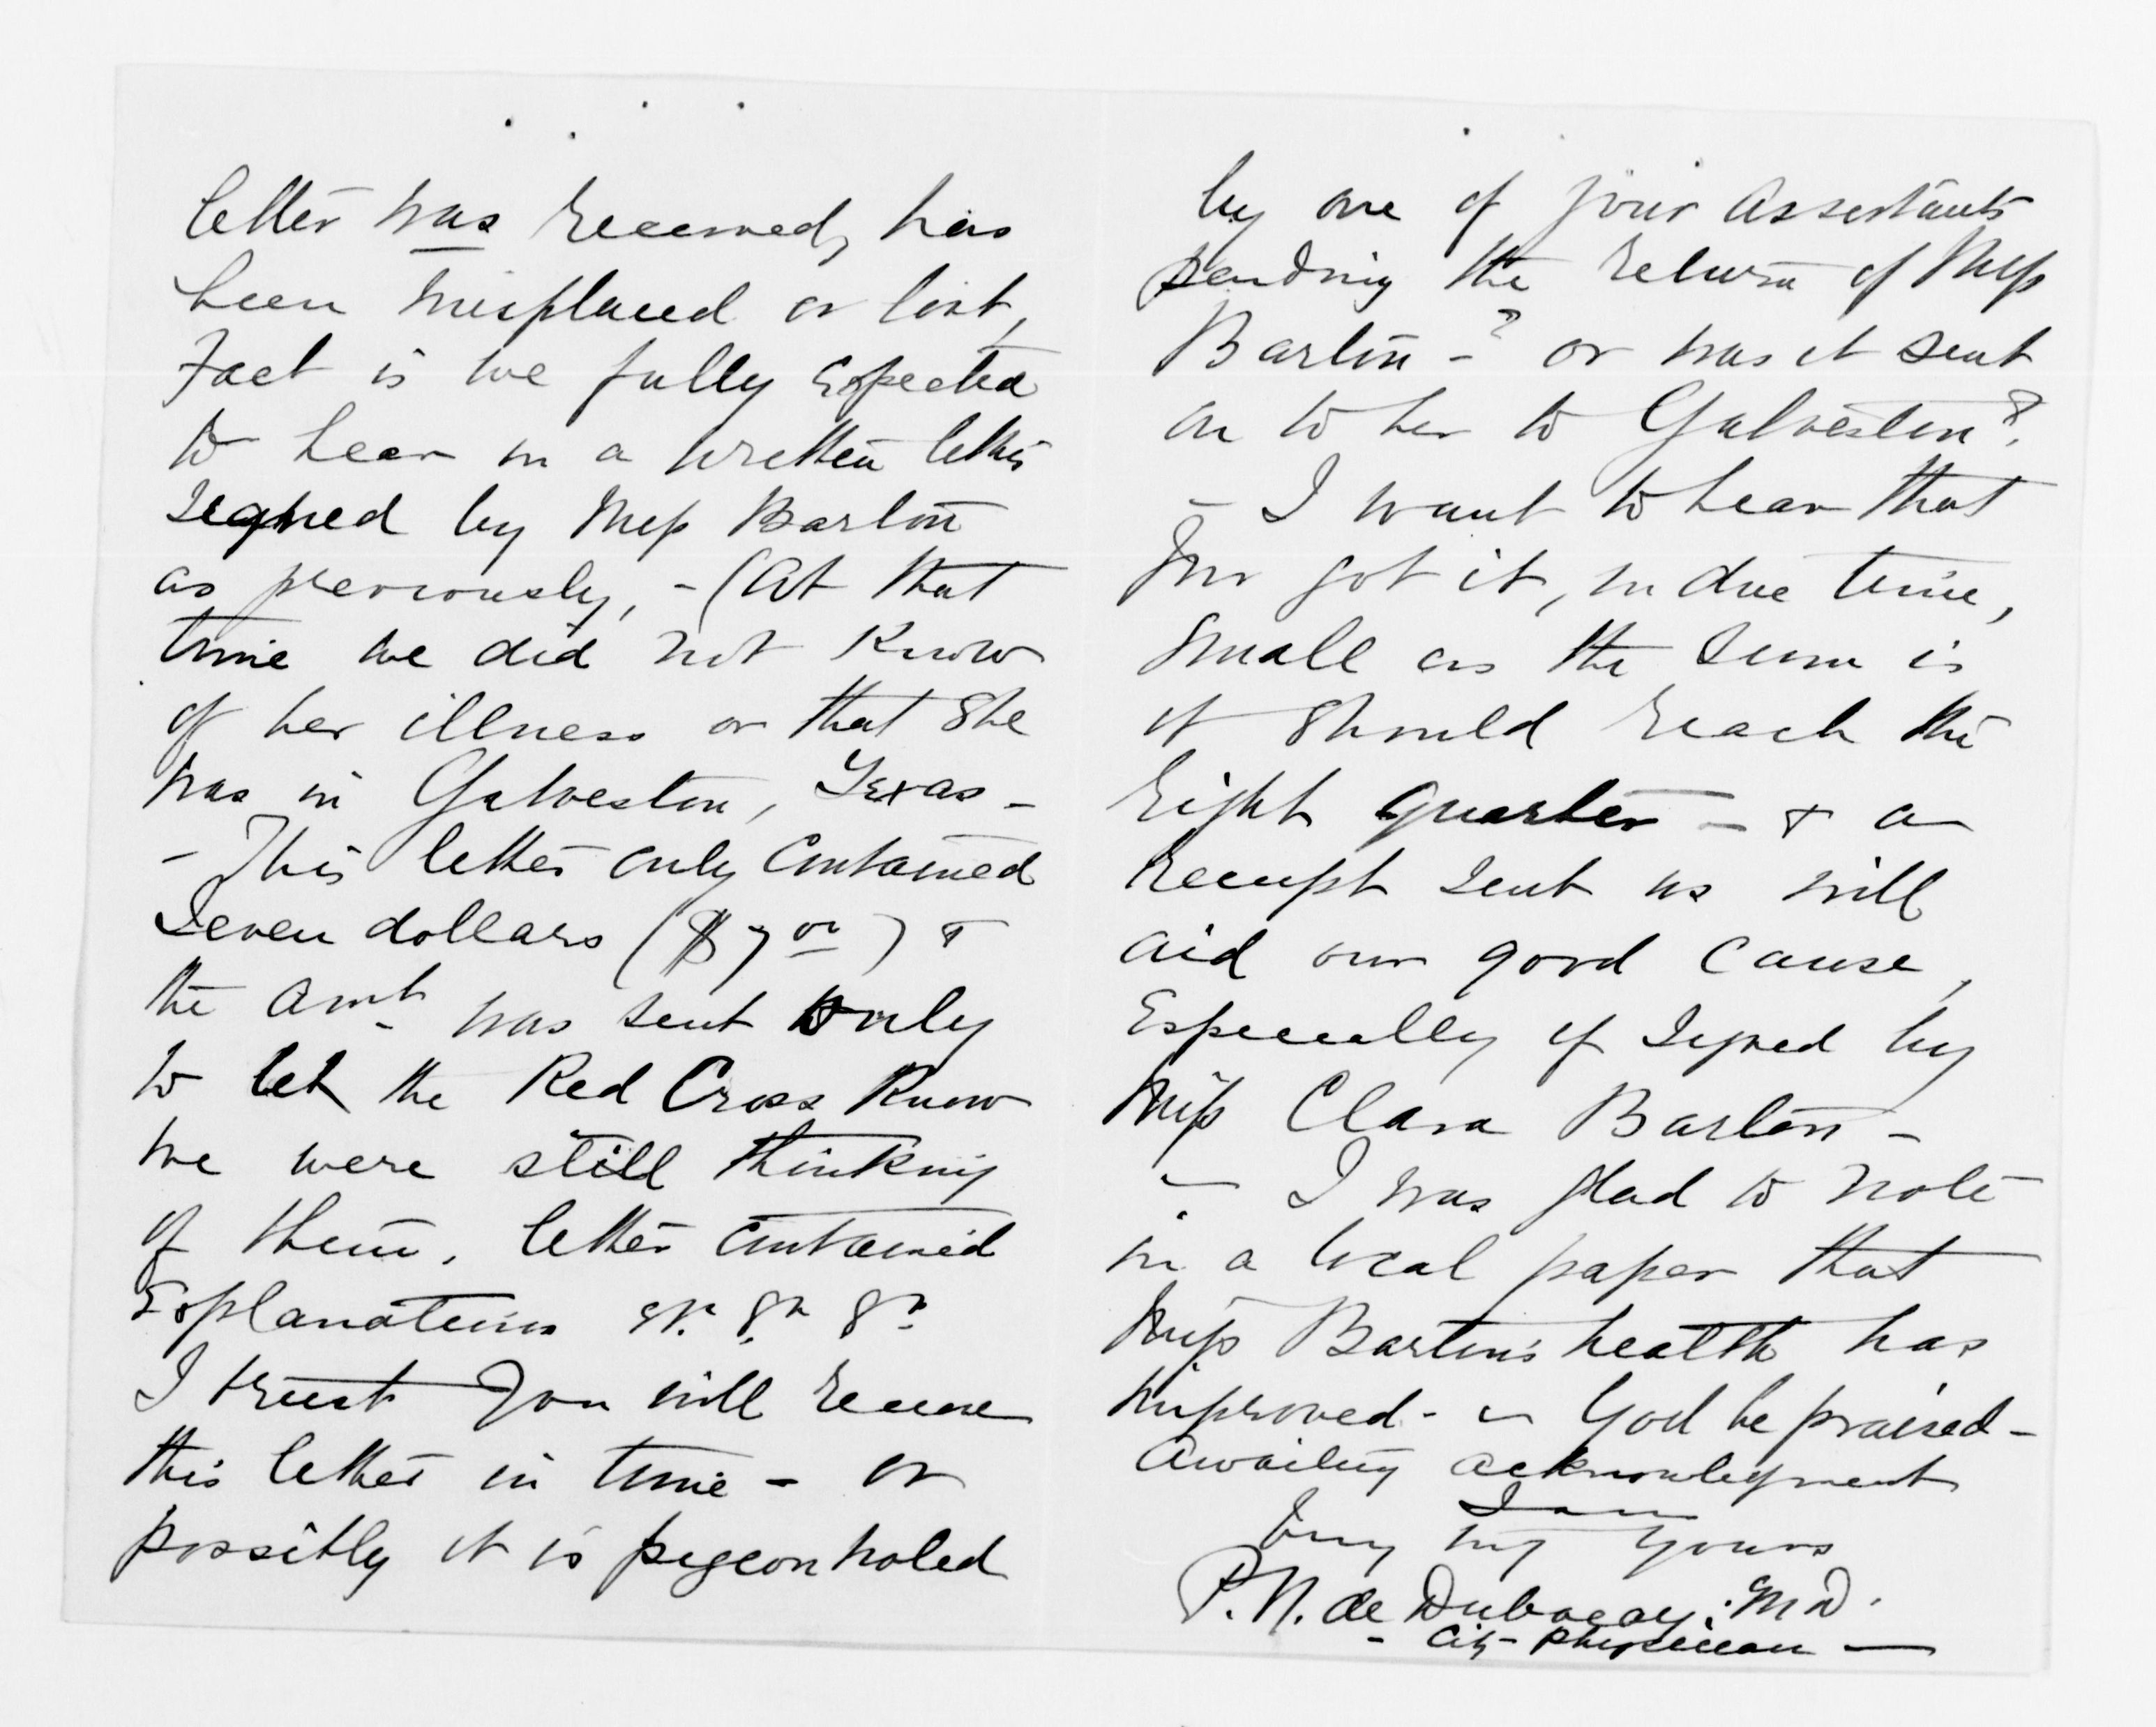 letter was received, has
been misplaced or lost,
Fact is we fully expected
to hear in a written letter
signed by Miss Barton
as previously, - (At that
time we did not know
of her illness or that she
was in Galveston, Texas -
- This letter only contained
Seven dollars ($7 00) &
the amt was sent only
to let the Red Cross Know
we were still thinking
of them. letter contained
Explanations &c. &c &c.
I trust you will receive
this letter in time - or
possibly it is pigeonholed
by one of your assistants
pending the return of Miss
Barton - ? or was it sent
on to her to Galveston?
- I want to hear that
you got it, in due time,
Small as the sum is
it should reach the
right quarter - & a
receipt sent us will
aid our good cause,
Especially if signed by
Miss Clara Barton -
- I was glad to note
in a local paper that
Miss Barton's health has
improved - God be praised -
Awaiting acknowlegment
I am
Very trly yours
P. N. de Dubovay: M D.
- City Physician -